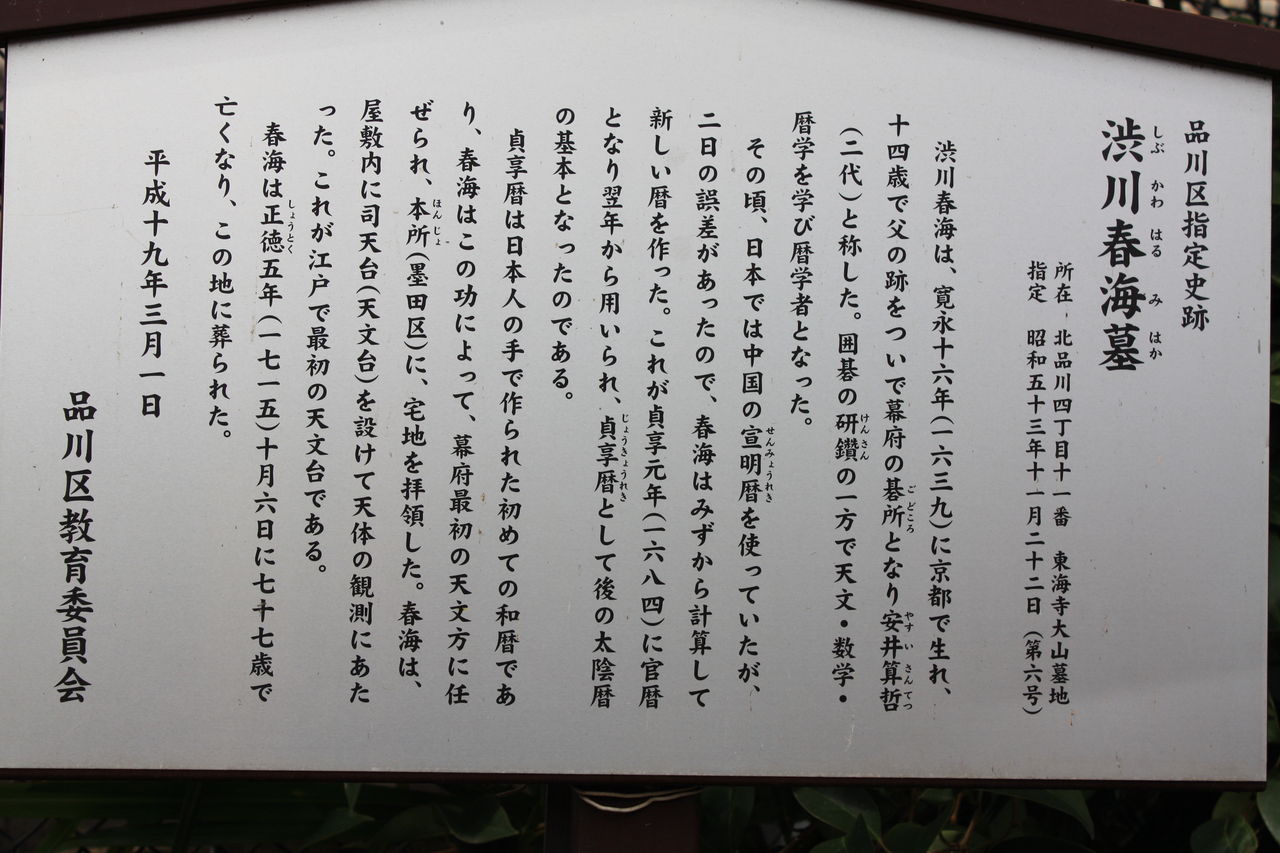 品川区指定史跡
渋川春海墓
しぶ かわ はる み はか
所在 北品川四丁目十一番 東海寺大山墓地
指定 昭和五十三年十一月二十二日（第六号）
渋川春海は、寛永十六年（一六三九）に京都で生れ、
十四歳で父の跡をついで幕府の碁所となり安井算哲
ご どころ やす い さんてつ
（二代）と称した。囲碁の研鑽の一方で天文・数学・
けんさん
暦学を学び暦学者となった。
その頃、日本では中国の宣明暦を使っていたが、
せんみょうれき
二日の誤差があったので、春海はみずから計算して
新しい暦を作った。これが貞享元年（一六八四）に官暦
となり翌年から用いられ、貞享暦として後の太陰暦
じょうきょうれき
の基本となったのである。
貞享暦は日本人の手で作られた初めての和暦であ
り、春海はこの功によって、幕府最初の天文方に任
ぜられ、本所（墨田区）に、宅地を拝領した。春海は、
ほんじょ
屋敷内に司天台（天文台）を設けて天体の観測にあた
った。これが江戸で最初の天文台である。
春海は正徳五年（一七一五）十月六日に七十七歳で
しょうとく
亡くなり、この地に葬られた。
平成十九年三月一日
品川区教育委員会